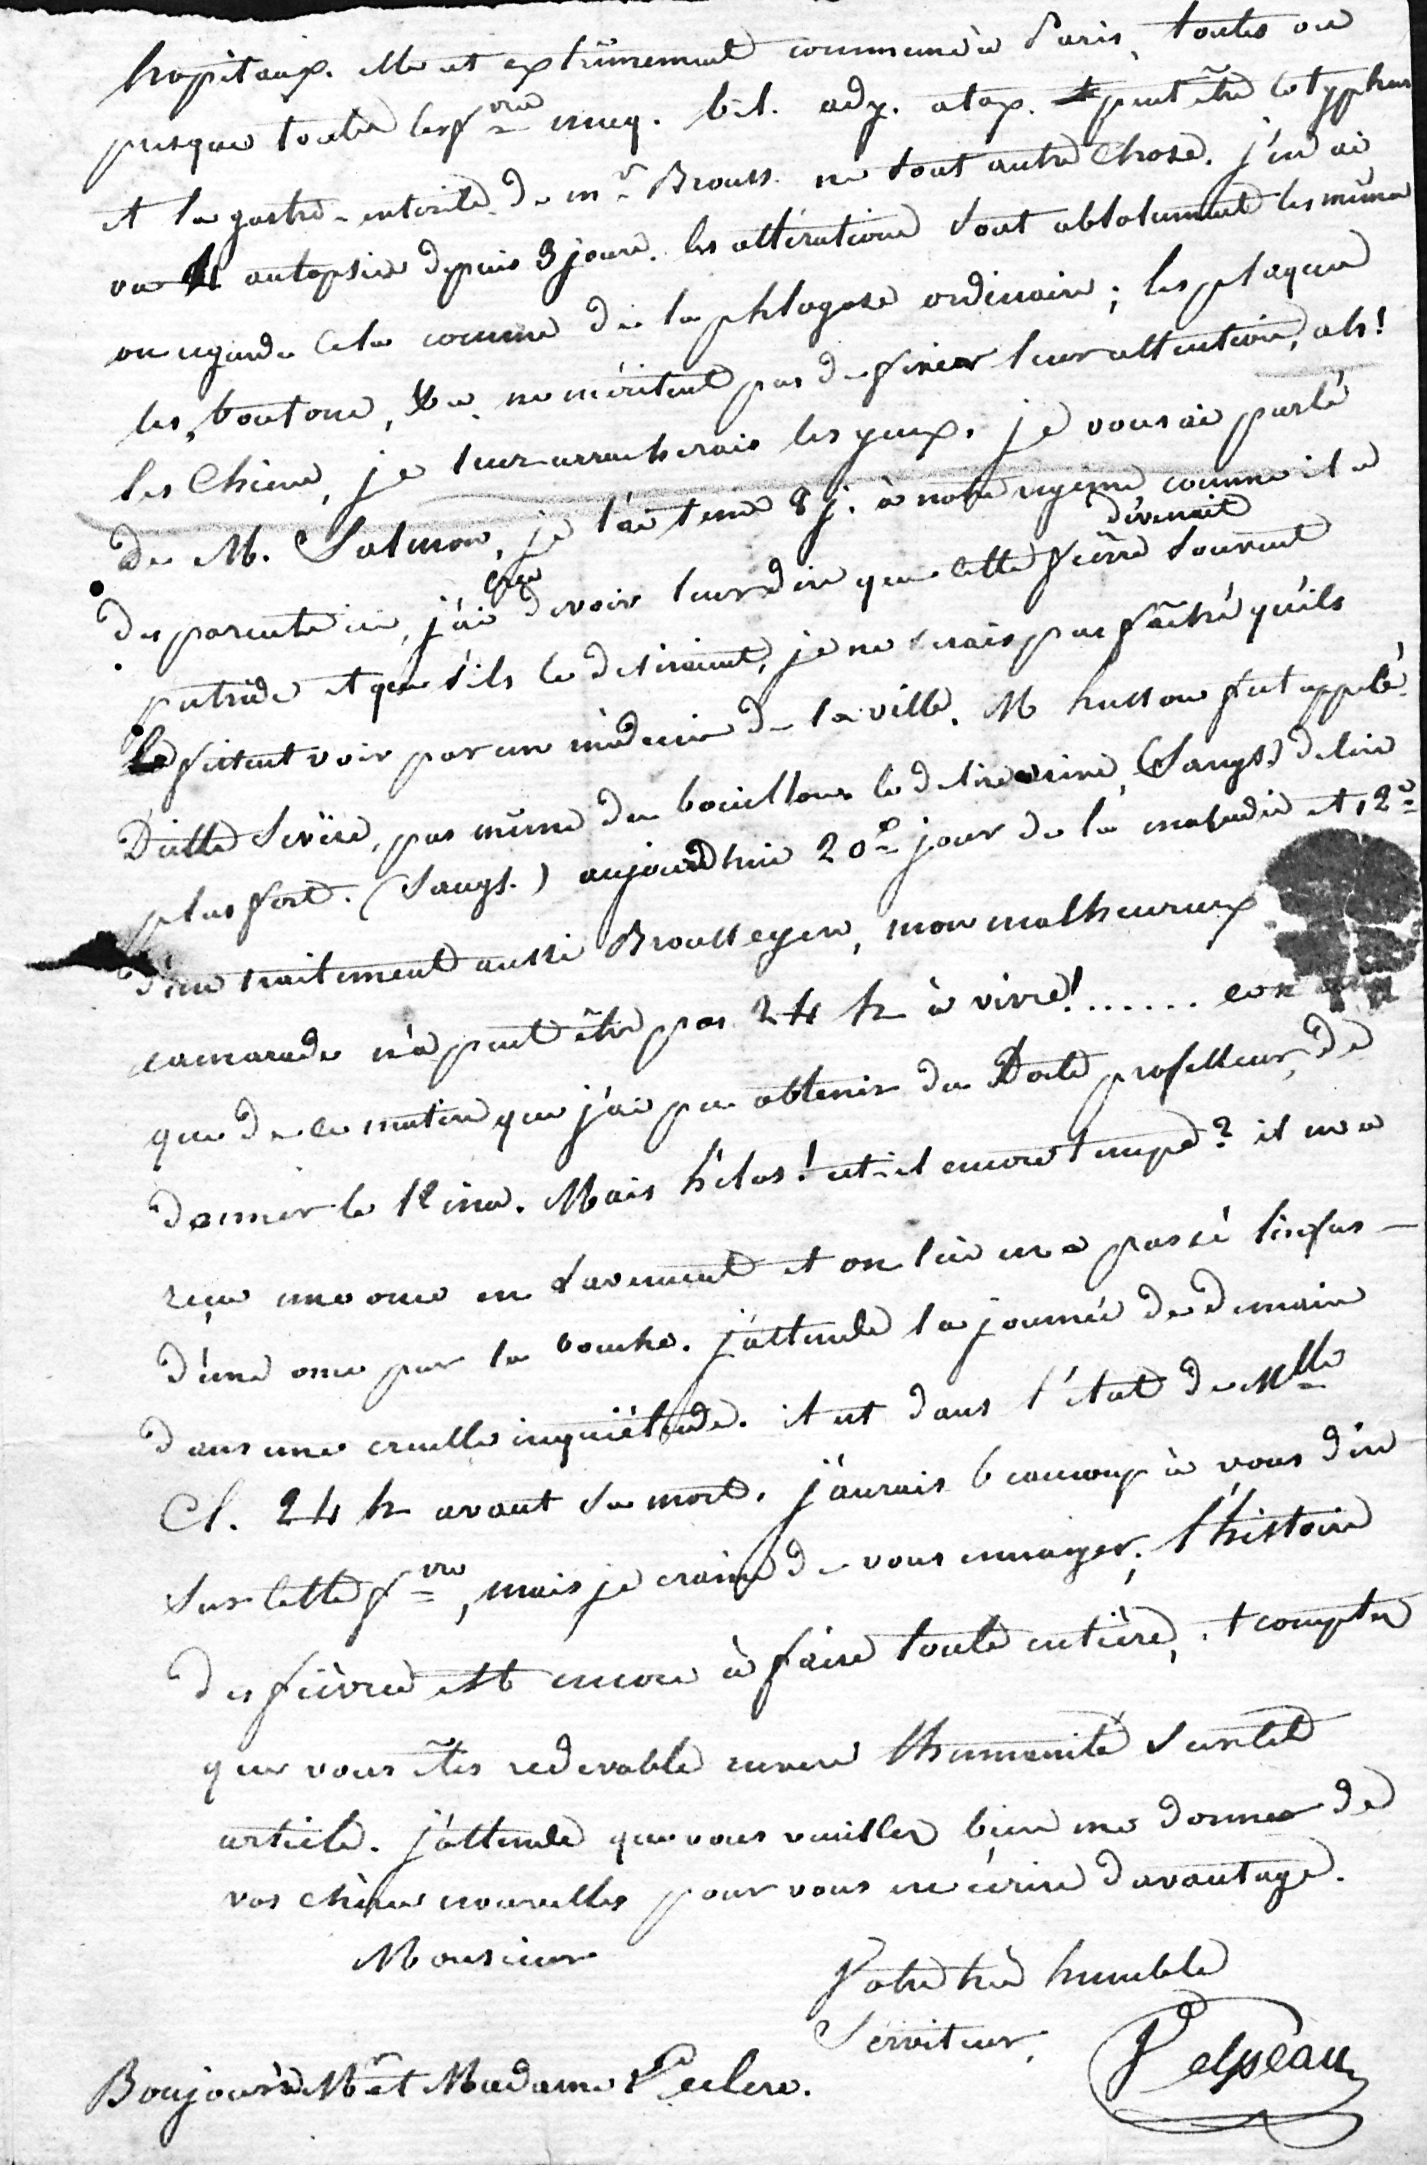 hopitaux. elle est extrêmement commune à Paris, toutes ou
presque toutes les f.vres muq. bil. ady. atax. peut être le typhus
et la gastro-entérite de mr Brouss. ne sont autre chose. j'en ai
vu 4 autopsies depuis 3 jours. les altérations sont absolument les mêmes
on regarde cela comme de la phlogose ordinaire; les plaques
les boutons, &a ne méritent pas de fixer leur attention, ah!
les Chiens, je leur arracherais les yeux. je vous ai parlé
de M. Salmon, je l'ai tenu 8 j. à notre régime comme il a
des parents ici, j'ai cru devoir leur dire que cette fièvre devenait souvent
putride et que s'ils le desiraient, je ne serais pas fâché qu'ils
le fissent voir par un médecin de la ville. M husson fut appelé.
Diette sévère, pas même de bouillons le delire arrive, (Sangs.) delire
plus fort. (Sangs.) aujourdhui 20e jour de la maladie et 12e
d'un traitement aussi Brousseyen, mon malheureux
camarade n'a peut être pas 24 h à vivre!...... ce n
que de ce matin que j'ai pu obtenir du Docte professeur, de
donner le Kina. Mais hélas! est-il encore temps? il en a
reçu une once en lavement et on lui en a passé l'infus-
d'une once par la bouche. j'attends la journée de demain
dans une cruelle inquiétude. il est dans l'état de Mlle
Cl. 24 h avant sa mort. j'aurais beaucoup à vous dire
sur cette f.vre, mais je crains de vous ennuyer; l'histoire
des fièvres est encore à faire toute entière, et comptez
que vous êtes redevable envers l'humanité sur cet
article. j'attends que vous vouillez bien me donner de
vos chères nouvelles pour vous en écrire davantage.
Monsieur
Votre très humble
Serviteur.
Velpeau
Bonjour à Mr et Madame Leclerc.